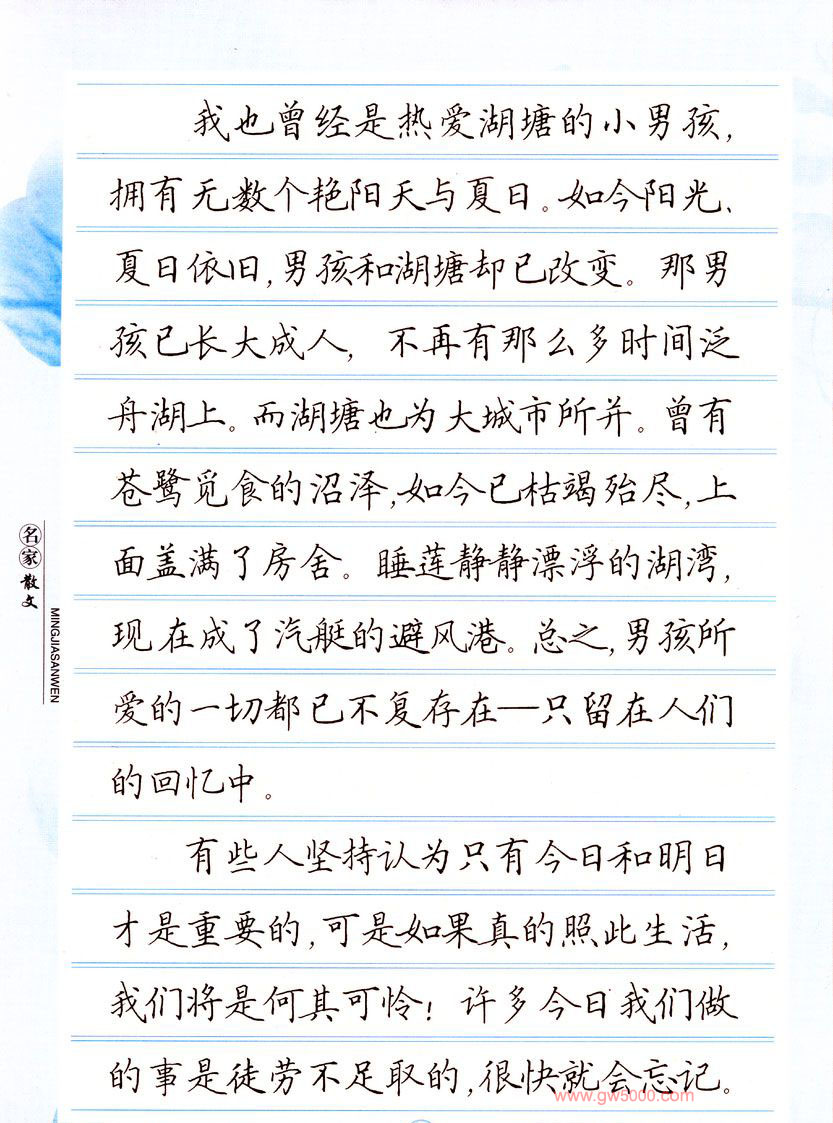 我也曾经是热爱湖塘的小男孩，
拥有无数个艳阳天与夏日。如今阳光、
夏日依旧，男孩和湖塘却已改变。那男
孩已长大成人，不再有那么多时间泛
舟湖上。而湖塘也为大城市所并。曾有
苍鹭觅食的沼泽，如今已枯竭殆尽，上
面盖满了房舍。睡莲静静漂浮的湖湾，
现在成了汽艇的避风港。总之，男孩所
爱的一切都已不复存在—只留在人们
的回忆中。
有些人坚持认为只有今日和明日
才是重要的，可是如果真的照此生活，
我们将是何其可怜！许多今日我们做
的事是徒劳不足取的，很快就会忘记。
名家散文
MINGJIASANWEN
www.gw5000.com